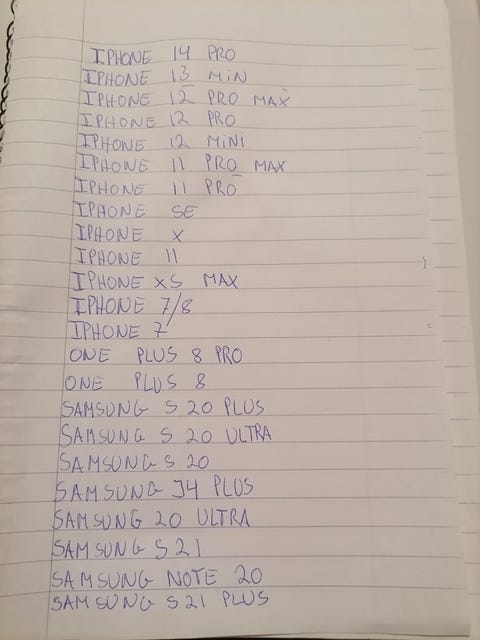 IPHONE 14 PRO
IPHONE 13 MiN
IPHONE 12 PRO MAX
IPHONE 12 PRO
IPHONE 12 MiNi
IPHONE 11 PRO MAX
IPHONE 11 PRO
IPHONE SE
IPHONE X
IPHONE 11
IPHONE XS MAX
IPHONE 7/8
IPHONE 7
ONE PLUS 8 PRO
ONE PLUS 8
SAMSUNG S 20 PLUS
SAMSUNG S 20 ULTRA
SAMSUNG S 20
SAMSUNG J4 PLUS
SAMSUNG 20 ULTRA
SAMSUNG S21
SAMSUNG NOTE 20
SAMSUNG S21 PLUS